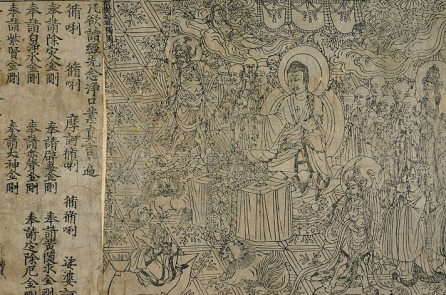 凡欲讀經先念淨口業真言遍
脩唎 脩唎 摩訶脩唎 脩脩唎 娑婆
奉請除灾金剛 奉請辟毒金剛 奉請黃隨求金剛
奉請白淨水金剛 奉請赤聲金剛 奉請定除厄金剛
奉請紫賢金剛 奉請大神金剛